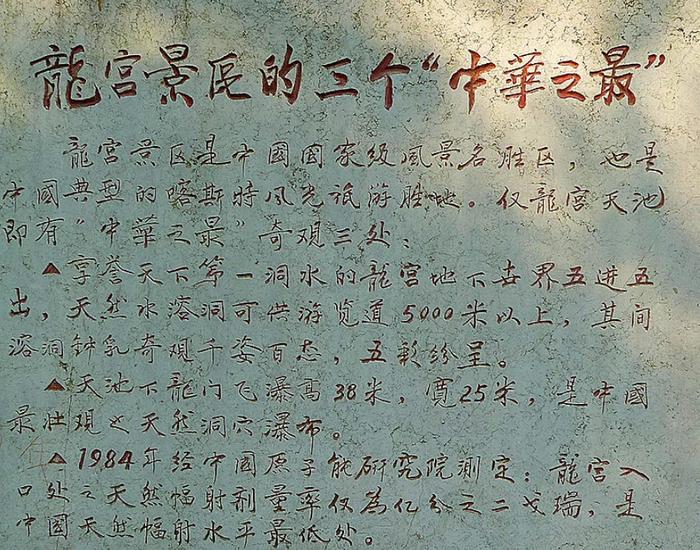 龍宫景区的三个“中華之最”
龍宫景区是中國國家级風景名胜区，也是
中國典型的喀斯特风光旅游胜地。仅龍宫天池
即有“中華之最”奇观三处：
▲享誉天下第一洞水的龍宫地下世界五进五
出，天然水溶洞可供游览道5000米以上，其间
溶洞钟乳奇观千姿百态，五彩纷呈。
▲天池下龍门飞瀑高38米，寬25米，是中國
最壮观之天然洞穴瀑布。
▲1984年经中国原子能研究院测定：龍宫入
口处之天然幅射剂量率仅為亿分之二戈瑞，是
中国天然幅射水平最低处。